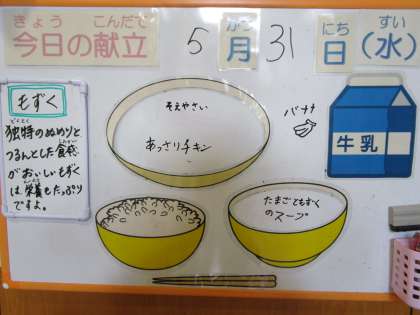 きょう こんだて がつ にち すい
今日の献立 5月31日(水)
もずく
どくとく
独特のぬめりと
つるんとした食感
がおいしいもずく
は栄養もたっぷり
ですよ。
そえやさい
あっさりチキン
バナナ
牛乳
たまごともずく
のスープ